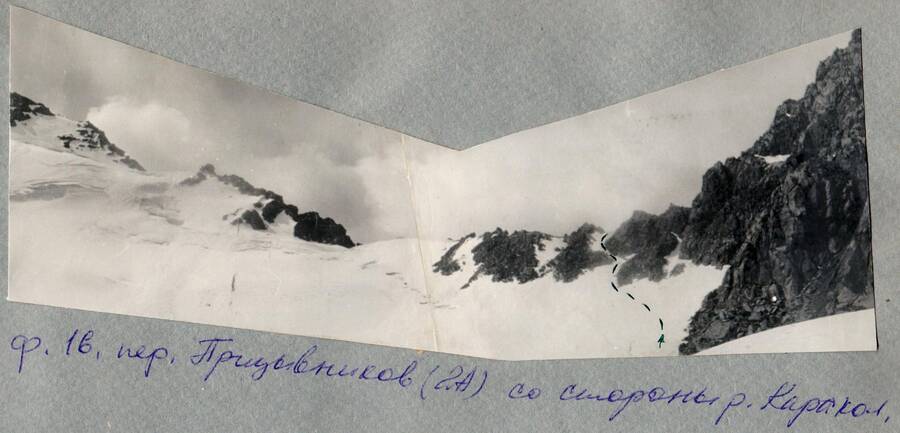 ф. 1в. пер. Призывников (2А) со стороны р. Каракол.